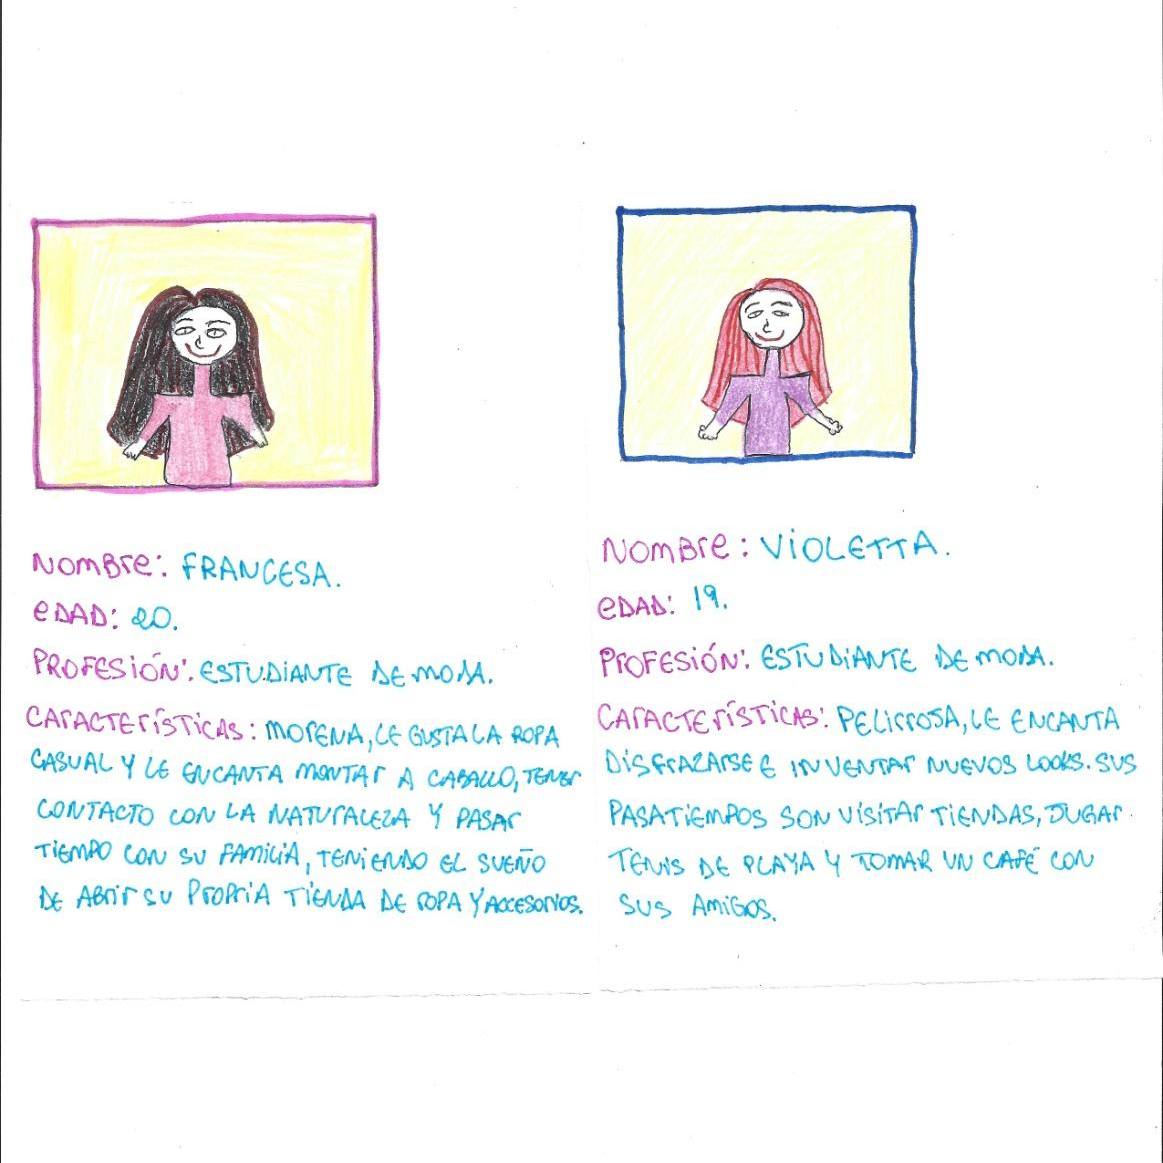 Nombre: FRANCESA.
EDAD: 20.
PROFESIÓN: ESTUDIANTE DE MODA.
CARACTERÍSTICAS: MORENA, LE GUSTA LA ROPA
CASUAL Y LE ENCANTA MONTAR A CABALLO, TENER
CONTACTO CON LA NATURALEZA Y PASAR
TIEMPO CON SU FAMILIA, TENIENDO EL SUEÑO
DE ABRIR SU PROPRIA TIENDA DE ROPA Y ACCESORIOS.
Nombre: VIOLETTA.
EDAD: 19.
PROFESIÓN: ESTUDIANTE DE MODA.
CARACTERÍSTICAS: PELIRROSA, LE ENCANTA
DISFRAZARSE E INVENTAR NUEVOS LOOKS. SUS
PASATIEMPOS SON VISITAR TIENDAS, JUGAR
TENIS DE PLAYA Y TOMAR UN CAFÉ CON
SUS AMIGOS.